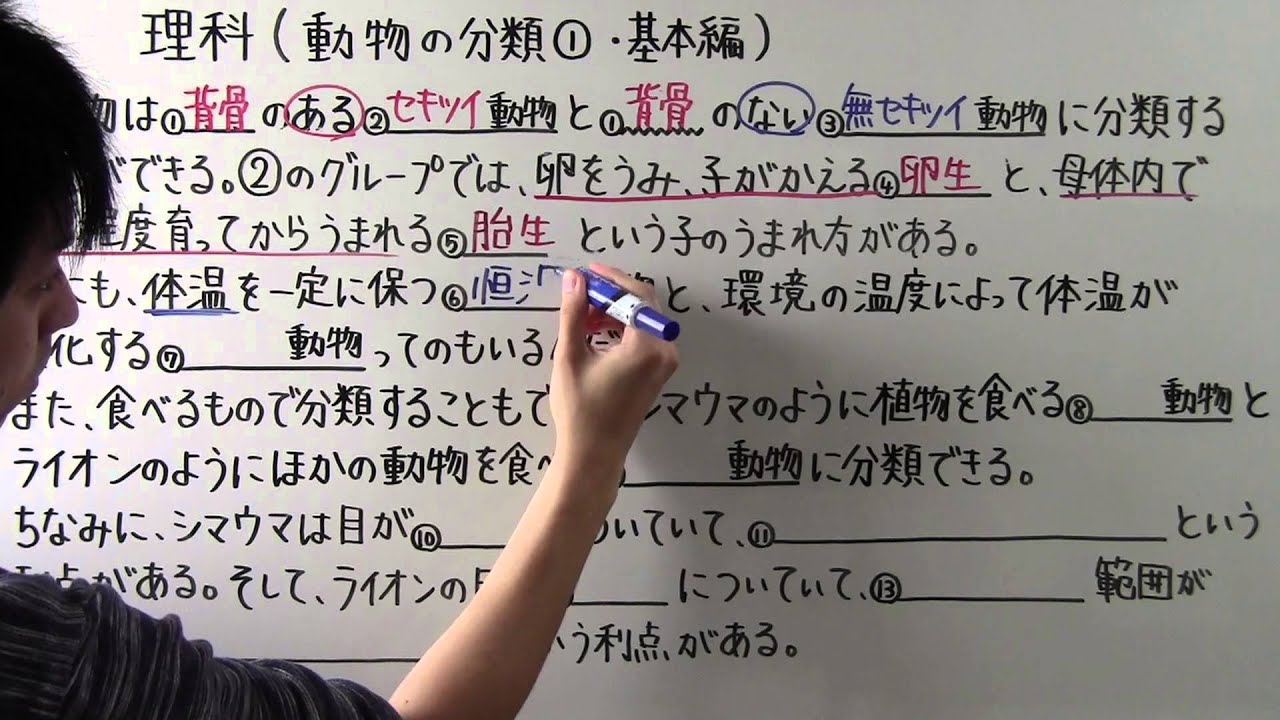 理科(動物の分類①・基本編)
物は①背骨のある②セキツイ動物と①背骨のない③無セキツイ動物に分類する
ができる。②のグループでは、卵をうみ、子がかえる④卵生と、母体内で
程度育ってからうまれる⑤胎生という子のうまれ方がある。
にも、体温を一定に保つ⑥恒 物と、環境の温度によって体温が
化する⑦ 動物ってのもいる
また、食べるもので分類することもで シマウマのように植物を食べる⑧ 動物と
ライオンのようにほかの動物を食べ 動物に分類できる。
ちなみに、シマウマは目が⑩ ついていて、⑪ という
利点がある。そして、ライオンの についていて、⑬ 範囲が
う利点がある。